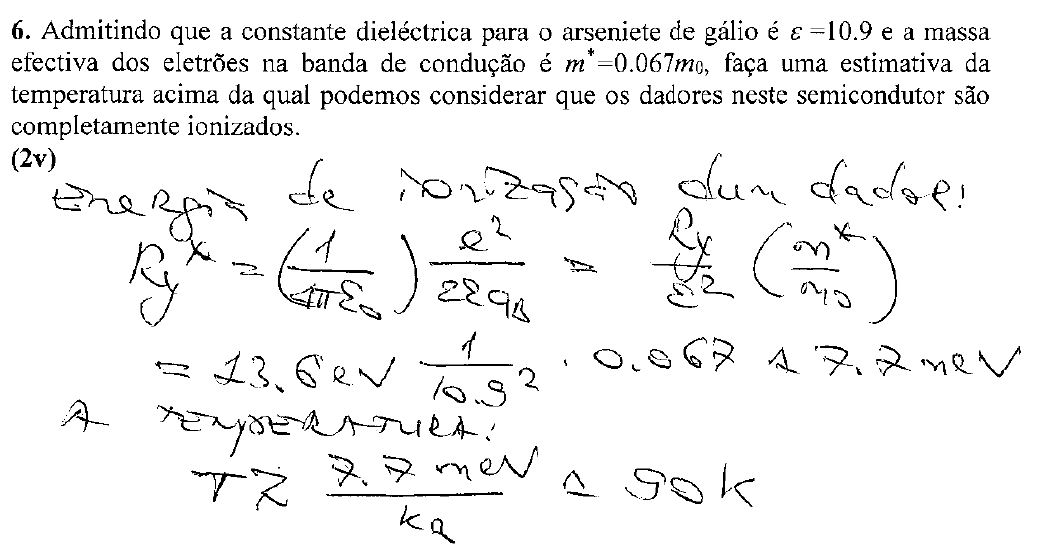 6. Admitindo que a constante dieléctrica para o arseniete de gálio é ε =10.9 e a massa
efectiva dos eletrões na banda de condução é m*=0.067m₀, faça uma estimativa da
temperatura acima da qual podemos considerar que os dadores neste semicondutor são
completamente ionizados.
(2v)
Energia de ionização dum dador:
Ry* = (1/4πε₀) e²/2εaB = Ry/ε² (m*/m₀)
= 13.6 eV 1/10.9² · 0.067 ≈ 7.7 meV
A TEMPERATURA:
T ≳ 7.7 meV/kB ≈ 90 K